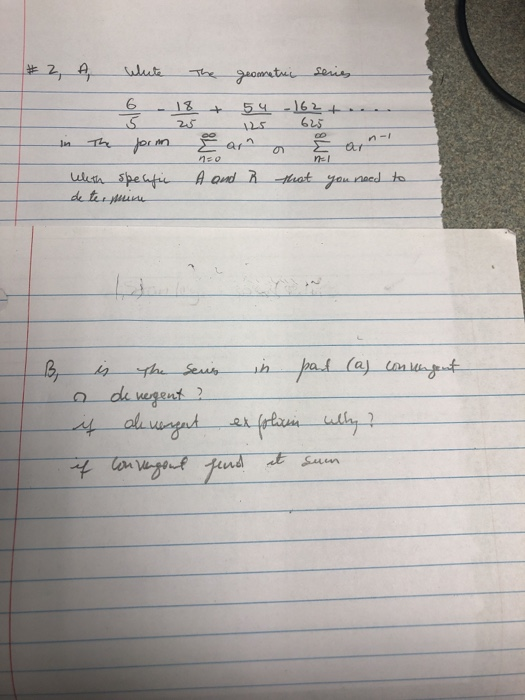 # 2, A, Write The geometric series
6/5 - 18/25 + 54/125 - 162/625 + ....
in The form ∞ Σ n=0 ar^n or ∞ Σ n=1 ar^n-1
With specific A and R that you need to
determine
B, is The Series in part (a) convergent
or divergent ?
if divergent explain why ?
if convergent find it sum